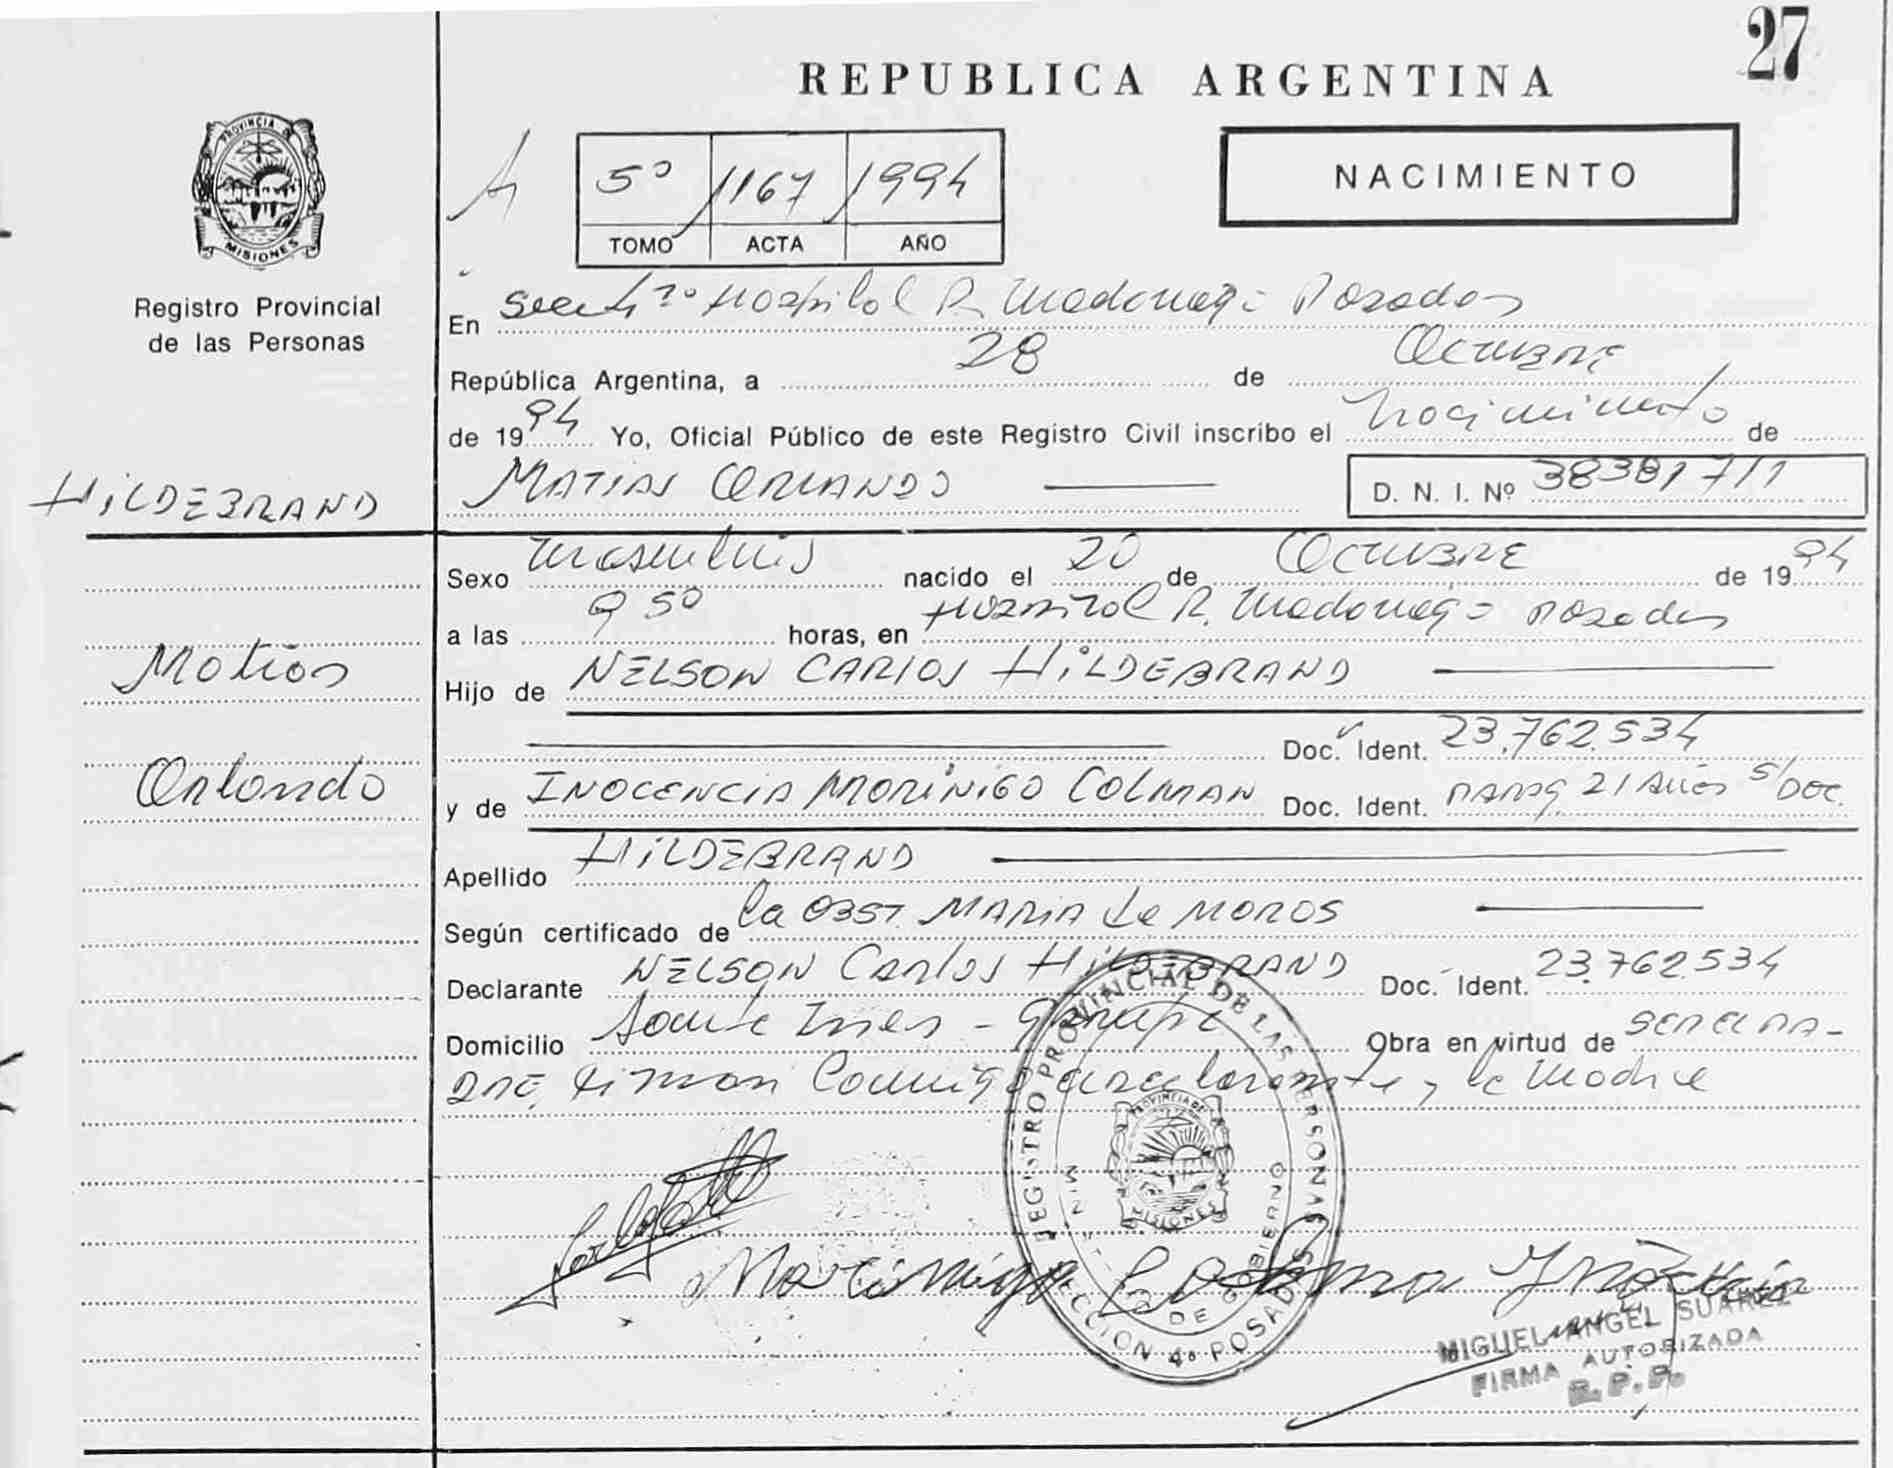 27
REPUBLICA ARGENTINA
PROVINCIA DE
MISIONES
Registro Provincial
de las Personas
5º 1167 1994
TOMO ACTA AÑO
NACIMIENTO
En Secc 4º Hospital R. Madariaga - Posadas
República Argentina, a 28 de Octubre
de 1994 Yo, Oficial Público de este Registro Civil inscribo el nacimiento de
HILDEBRAND
MATIAS ORLANDO
D. N. I. Nº 38381711
Sexo masculino nacido el 20 de Octubre de 1994
a las 9 50 horas, en Hospital R. Madariaga - Posadas
Matias
Hijo de NELSON CARLOS HILDEBRAND
Doc. Ident. 23.762.534
Orlando
y de INOCENCIA MORINIGO COLMAN Doc. Ident. parag 21 Años S/Doc.
Apellido HILDEBRAND
Según certificado de la OBST. MARIA de MOROS
Declarante NELSON Carlos HILDEBRAND Doc. Ident. 23.762.534
Domicilio Santa Ines - Garupá Obra en virtud de ser el PA-
DRE, firman Conmigo declarante y la Madre
REGISTRO PROVINCIAL DE LAS PERSONAS
PROVINCIA DE
MISIONES
DE GOBIERNO
SECCION 4º POSADAS
Morinigo Colman Inocencia
MIGUEL ANGEL SUAREZ
FIRMA AUTORIZADA
R. P. P.